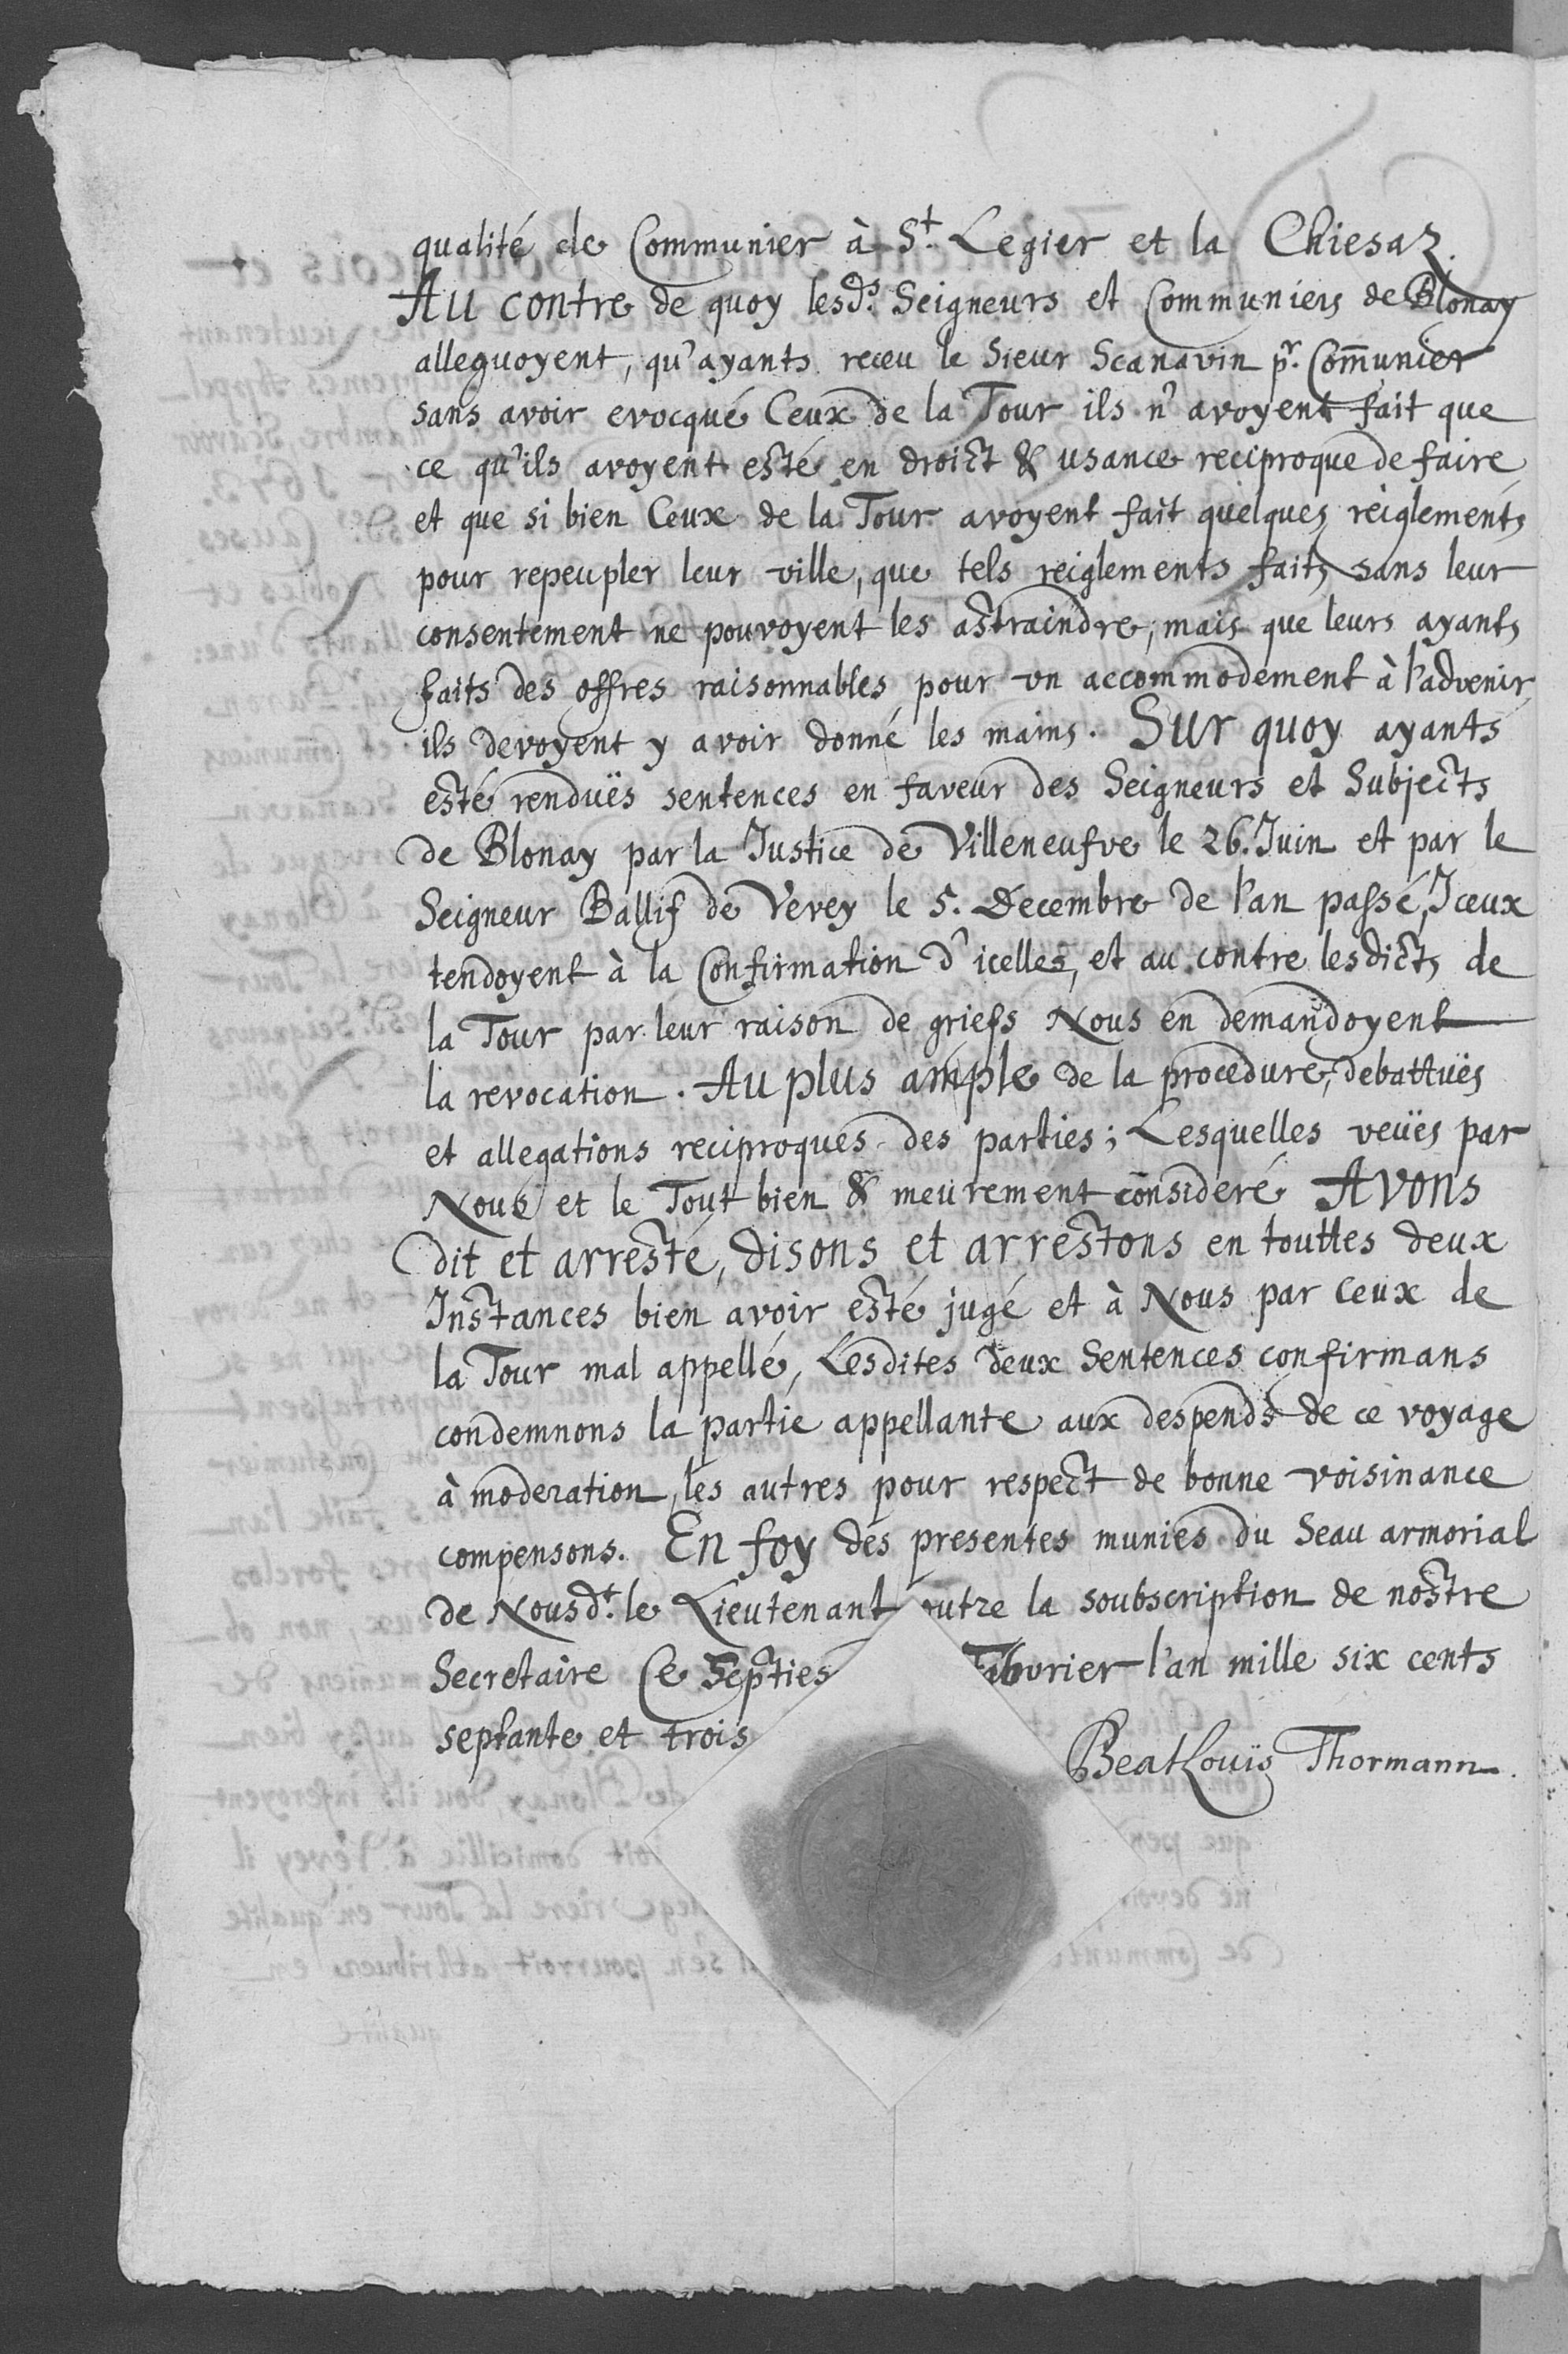 qualité de Communier à St. Legier et la Chiesaz.
Au contre de quoy lesds. Seigneurs et Communiers de Blonay
alleguoyent, qu'ayants receu le Sieur Scanavin pr. Com̄unier
sans avoir evocqué Ceux de la Tour ils n'avoyent fait que
ce qu'ils avoyent esté en droict & usance reciproque de faire
et que si bien Ceux de la Tour avoyent fait quelques reiglements
pour repeupler leur ville, que tels reiglements faits sans leur
consentement ne pouvoyent les astraindre, mais que leurs ayants
faits des offres raisonnables pour un accommodement à l'advenir
ils devoyent y avoir donné les mains. Sur quoy ayants
esté renduës sentences en faveur des Seigneurs et Subjects
de Blonay par la Justice de Villeneufve le 26. Juin et par le
Seigneur Ballif de Vevey le 5. Decembre de l'an passé, Iceux
tendoyent à la Confirmation d'icelles, et au contre lesdicts de
la Tour par leur raison de griefs Nous en demandoyent
la revocation. Au plus ample de la procedure, debattuës
et allegations reciproques des parties; Lesquelles veuës par
Nous et le Tout bien & meurement consideré Avons
dit et arresté, disons et arrestons en touttes deux
Instances bien avoir esté jugé et à Nous par Ceux de
la Tour mal appellé, Lesdites deux Sentences confirmans
condemnons la partie appellante aux despends de ce voyage
à moderation, les autres pour respect de bonne voisinance
compensons. En foy des presentes munies du Seau armorial
de Nousdt. le Lieutenant outre la soubscription de nostre
Secretaire Ce Septies Febvrier l'an mille six cents
septante et trois
BeatLouïs Thormann.